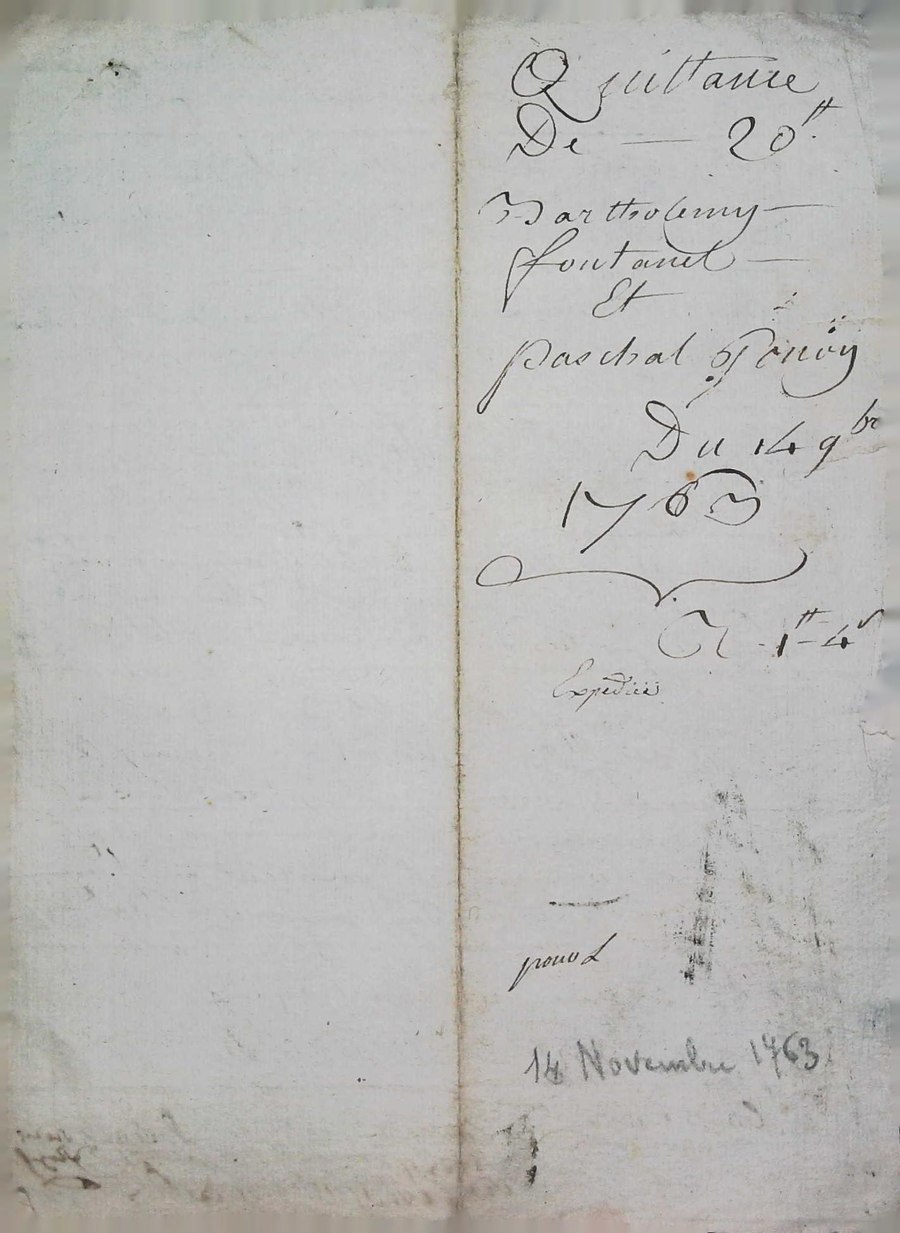 Quittance
De — 20 tt.
Barthelemy —
fontanel —
Et
paschal
Du 14 9br
1763
1tt 4s
Expediée
14 Novembre 1763